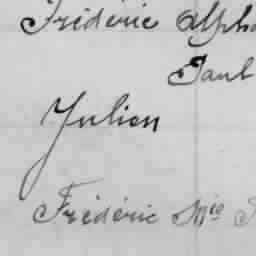 Frédéric Alpho
Paul
Julien
Frédéric Mie